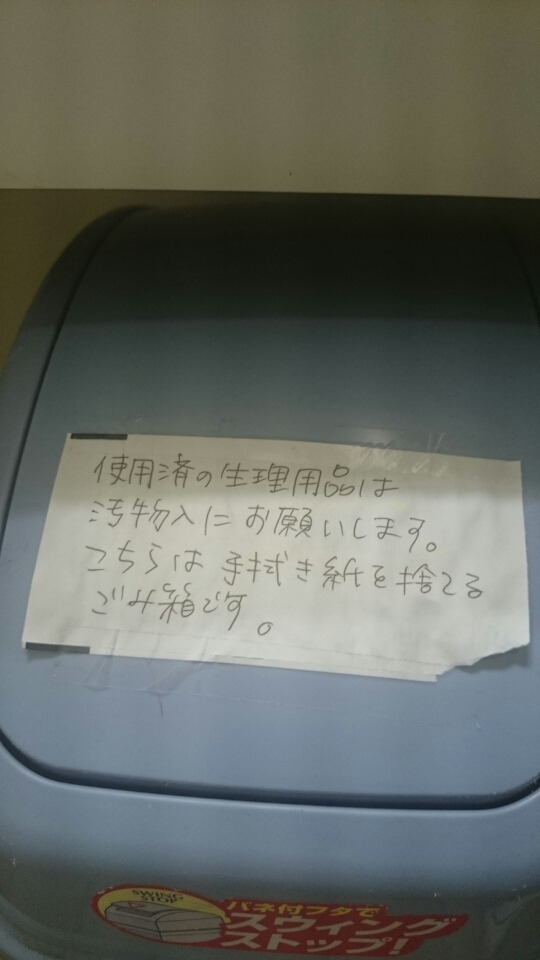 使用済の生理用品は
汚物入にお願いします。
こちらは手拭き紙を捨てる
ごみ箱です。
SWING
STOP
バネ付フタで
スウィング
ストップ!